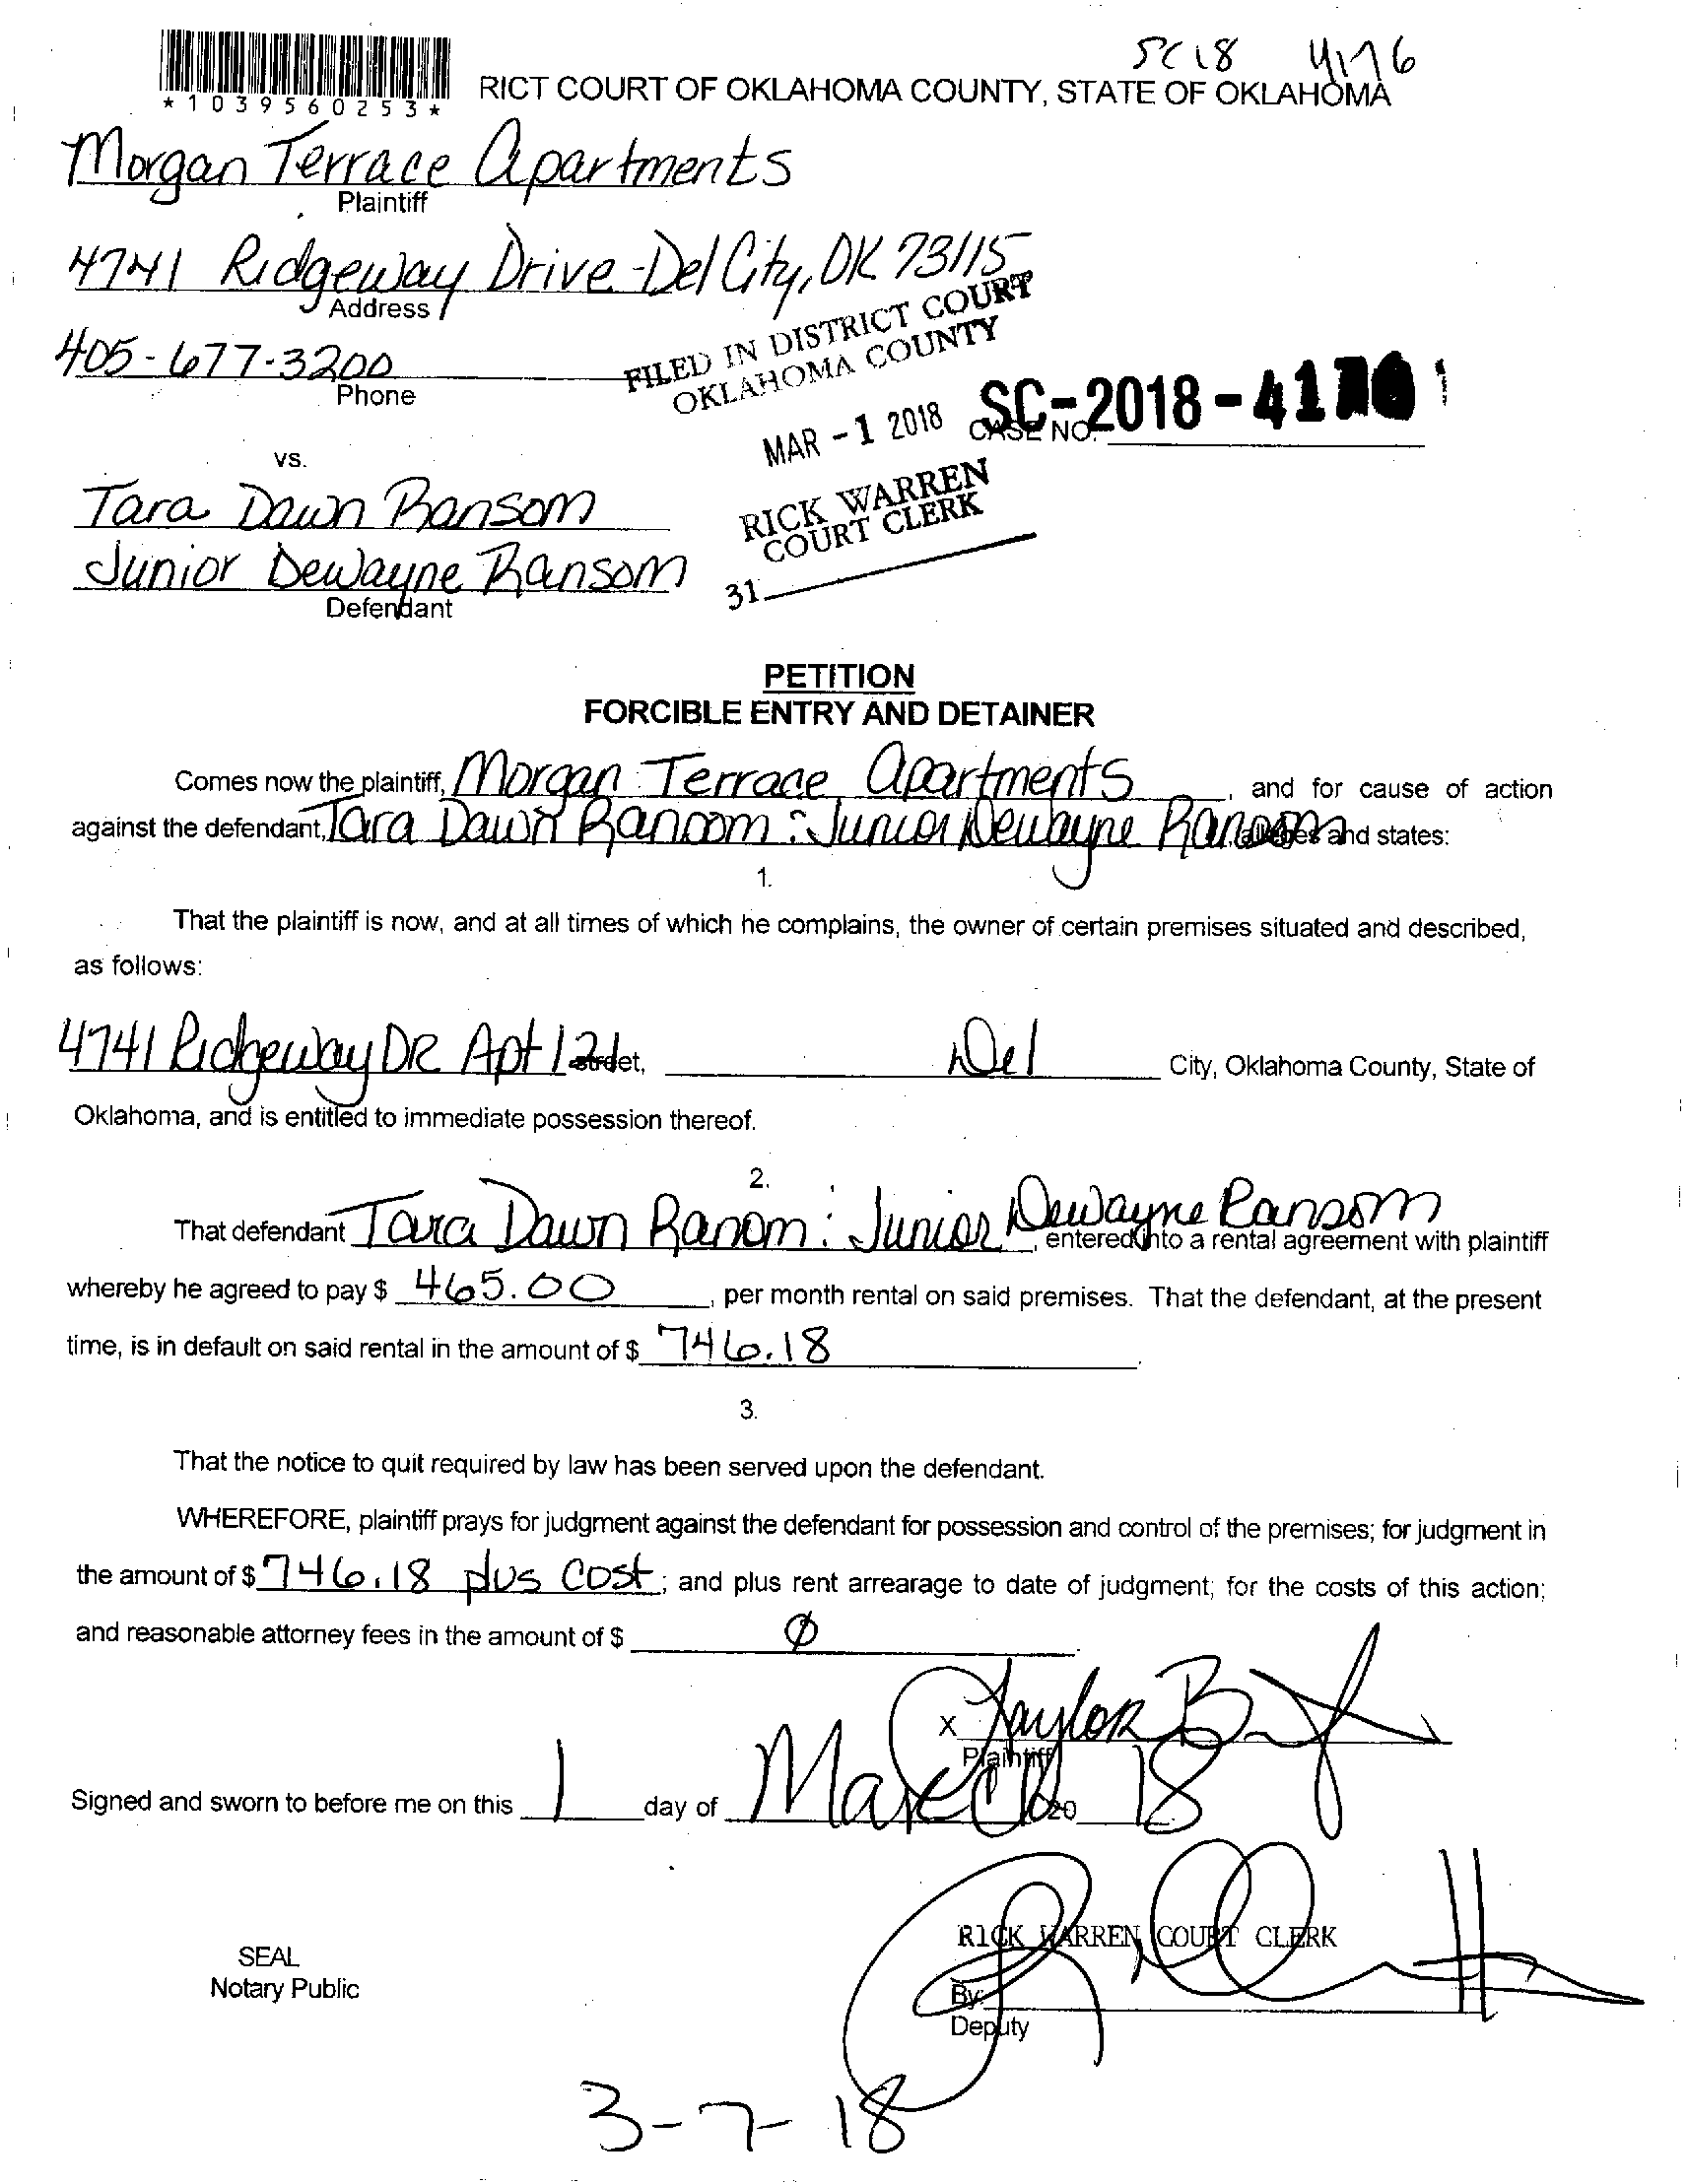 SC18 4176
*1039560253*
RICT COURT OF OKLAHOMA COUNTY, STATE OF OKLAHOMA
Morgan Terrace Apartments
Plaintiff
4741 Ridgeway Drive-Del City, OK 73115
Address
405-677-3200
Phone
FILED IN DISTRICT COURT
OKLAHOMA COUNTY
MAR -1 2018
SC-2018-
CASE NO.
vs.
RICK WARREN
COURT CLERK
31
Tara Dawn Ransom
Junior Dewayne Ransom
Defendant
PETITION
FORCIBLE ENTRY AND DETAINER
Comes now the plaintiff, Morgan Terrace Apartments, and for cause of action
against the defendant, Tara Dawn Ransom : Junior Dewayne Ransom, alleges and states:
1.
That the plaintiff is now, and at all times of which he complains, the owner of certain premises situated and described,
as follows:
4741 Ridgeway DR Apt 121 street, Del City, Oklahoma County, State of
Oklahoma, and is entitled to immediate possession thereof.
2.
That defendant Tara Dawn Ranom : Junior Dewayne Ransom, entered into a rental agreement with plaintiff
whereby he agreed to pay $ 465.00, per month rental on said premises. That the defendant, at the present
time, is in default on said rental in the amount of $ 746.18.
3.
That the notice to quit required by law has been served upon the defendant.
WHEREFORE, plaintiff prays for judgment against the defendant for possession and control of the premises; for judgment in
the amount of $ 746.18 plus cost; and plus rent arrearage to date of judgment; for the costs of this action;
and reasonable attorney fees in the amount of $ Ø.
X Taylor
Plaintiff
Signed and sworn to before me on this 1 day of March, 20 18.
RICK WARREN, COURT CLERK
SEAL
Notary Public
By:
Deputy
3-7-18